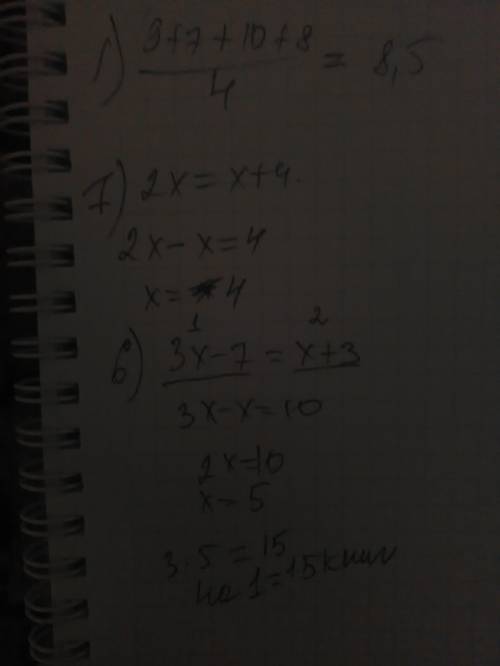 1) 9+7+10+8 / 4 = 8,5
7) 2x = x+4.
2x - x = 4
x = 4
1 2
6) 3x-7 = x+3
3x-x=10
2x=10
x=5
3·5=15
на 1=15 книг